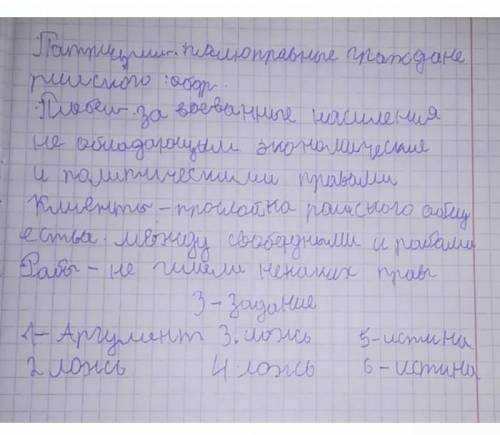 Патриции - полноправные граждане
римского общ.
Плебеи - за воеванные населения
не обладающим экономические
и политическими правами
Клиенты - прослойка римского общ
ества между свободными и рабами
Рабы - не имели никаких прав
3 - задание
1 - Аргумент 3. ложь 5 - истина
2 ложь 4 ложь 6 - истина